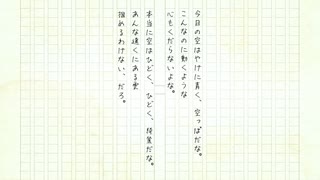 今日の空はやけに青く、空っぽだな。
こんなのに動くような
心もくだらないよな。
本当に空はひどく、ひどく、殺業だな。
あんな遠くにある雲
掴めるわけない、だろ。